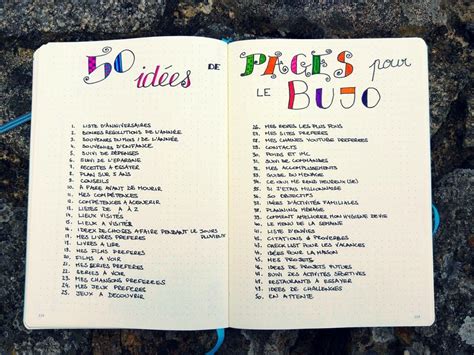 50 idées DE
1. LISTE D'ANNIVERSAIRES
2. BONNES RESOLUTIONS DE L'ANNÉE
3. SOUVENIRS DU MOIS / DE L'ANNÉE
4. SOUVENIRS D'ENFANCE
5. SUIVI DE DEPENSES
6. SUIVI DE L'EPARGNE
7. RECETTES A ESSAYER
8. PLAN SUR 5 ANS
9. CONSEILS
10. A FAIRE AVANT DE MOURIR
11. MES COMPÉTENCES
12. COMPÉTENCES A ACQUERIR
13. LISTES DE A À Z
14. LIEUX VISITÉS
15. LIEUX A VISITER
16. IDEES DE CHOSES A FAIRE PENDANT LES JOURS
PLUVIEUX
17. MES LIVRES PREFERES
18. LIVRES A LIRE
19. MES FILMS PREFERES
20. FILMS A VOIR
21. MES SERIES PREFERES
22. SERIES A VOIR
23. MES CHANSONS PREFEREES
24. MES JEUX PREFERES
25. JEUX A DECOUVRIR
PAGES pour
LE BUJO
26. MES REVES LES PLUS FOUS
27. MES SITES PREFERES
28. MES CHAINES YOUTUBE PREFEREES
29. CONTACTS
30. POIDS ET
31. SUIVI DE COMMANDES
32. MES ACCOMPLISSEMENTS
33. DU MENAGE
34. CE QUI ME REND HEUREUX (SE)
35. SI J'ETAIS MILLIONNAIRE
36. 50 OBJECTIFS
37. IDÉES D'ACTIVITÉS FAMILIALES
38. PLANNING MÉNAGE
39. COMMENT AMÉLIORER MON HYGIENE DE VIE
40. LE MENU DE LA SEMAINE
41. LISTE D'ENVIES
42. CITATIONS & PROVERBES
43. CHECK LIST POUR LES VACANCES
44. IDÉES POUR LA MAISON
45. MES PROJETS
46. IDEES DE PROJETS FUTURS
47. SUIVI DES ACTIVITÉS SPORTIVES
48. RESTAURANTS À ESSAYER
49. IDEES DE CHALLENGES
50. EN ATTENTE